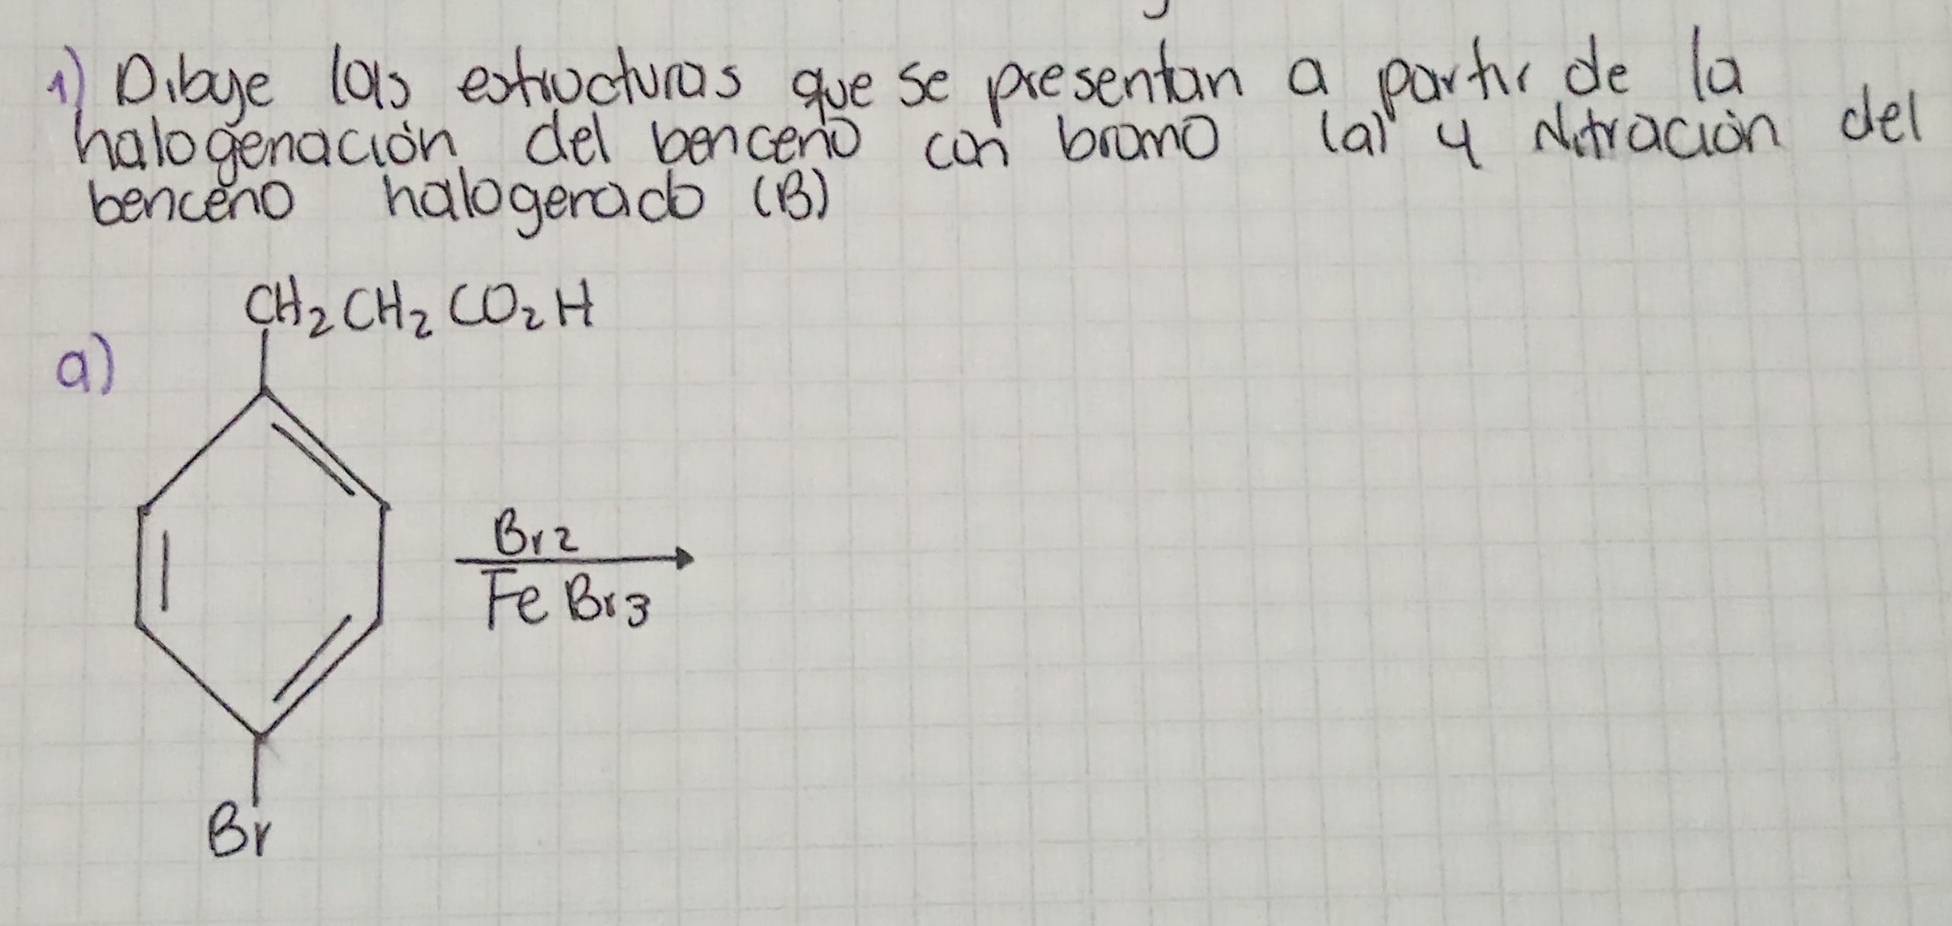 1) Dibuje las estructuras que se presentan a partir de la
halogenación del benceno con bromo (a) y Nitración del
benceno halogenado (B)
CH₂CH₂CO₂H
a)
Br₂
FeBr₃
Br